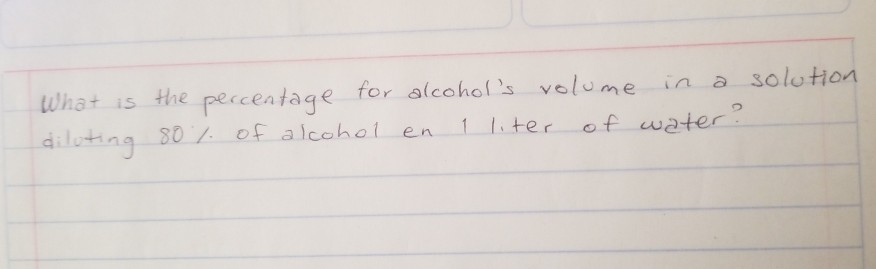 What is the percentage for alcohol's volume in a solution
diluting 80 % of alcohol en 1 liter of water?